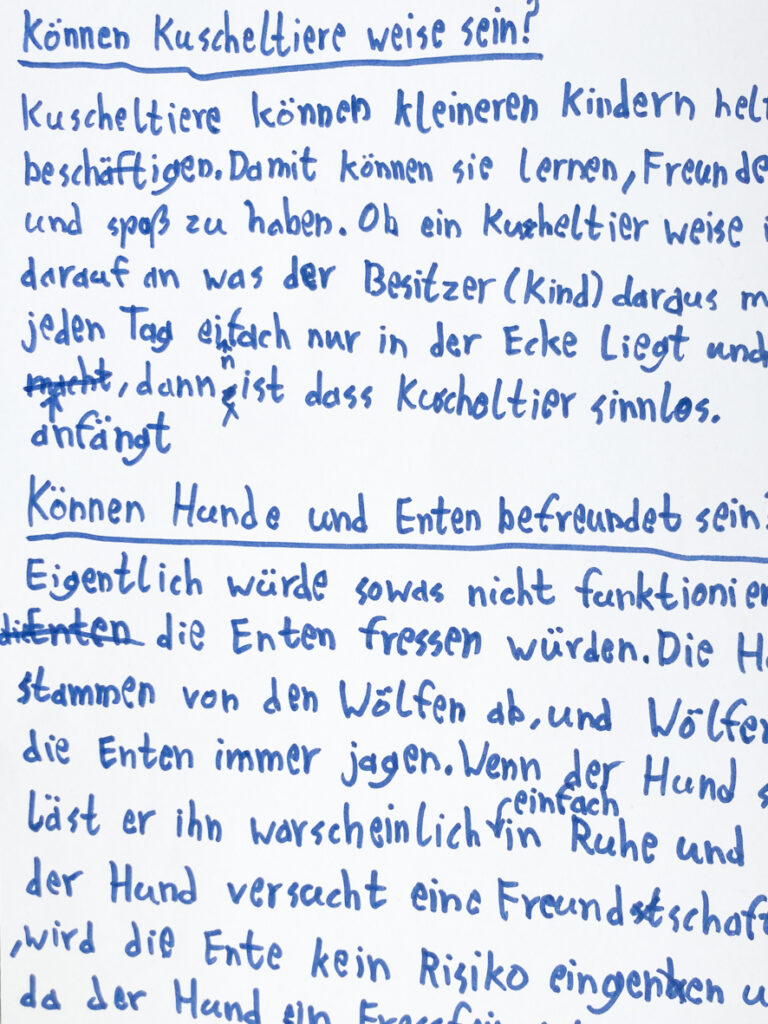 Können Kuscheltiere weise sein?
Kuscheltiere können kleineren Kindern
beschäftigen. Damit können sie lernen, Freunde
und spoß zu haben. Ob ein Kuscheltier weise
darauf an was der Besitzer (Kind) daraus
jeden Tag einfach nur in der Ecke liegt und
anfängt, dann ist dass Kuscheltier sinnlos.
Können Hunde und Enten befreundet sein?
Eigentlich würde sowas nicht funktionier
die Enten fressen würden. Die
stammen von den Wölfen ab, und Wölfe
die Enten immer jagen. Wenn der Hund
läst er ihn warscheinlich einfach in Ruhe und
der Hund versucht eine Freundstschaft
, wird die Ente kein Risiko
da der Hund ein